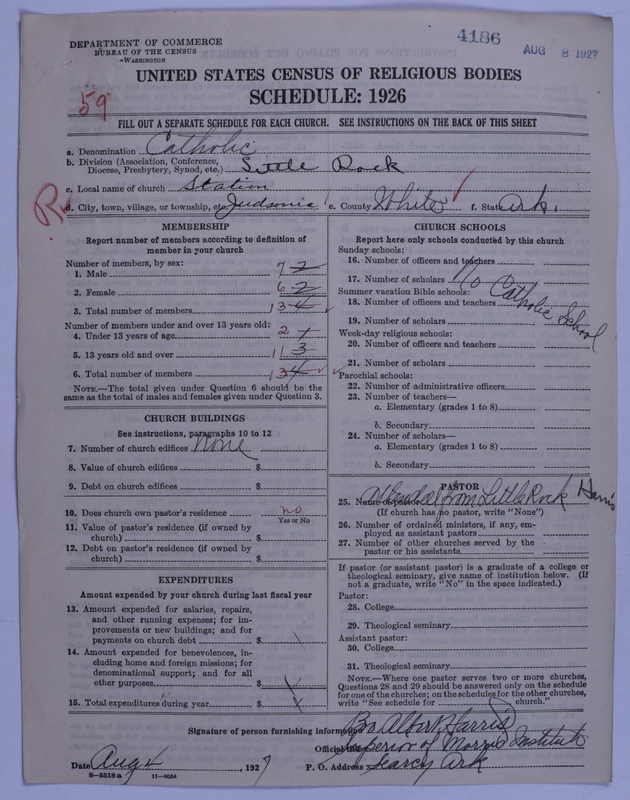 4186
AUG 8 1927
DEPARTMENT OF COMMERCE
BUREAU OF THE CENSUS
WASHINGTON
UNITED STATES CENSUS OF RELIGIOUS BODIES
SCHEDULE: 1926
59
FILL OUT A SEPARATE SCHEDULE FOR EACH CHURCH. SEE INSTRUCTIONS ON THE BACK OF THIS SHEET
a. Denomination Catholic
b. Division (Association, Conference,
Diocese, Presbytery, Synod, etc.) Little Rock
c. Local name of church Station
d. City, town, village, or township, etc. Judsonia e. County White f. State Ark.
R
MEMBERSHIP
Report number of members according to definition of
member in your church
Number of members, by sex:
1. Male 7 2
2. Female 6 2
3. Total number of members 13 4
Number of members under and over 13 years old:
4. Under 13 years of age 2 1
5. 13 years old and over 11 3
6. Total number of members 13 4
NOTE.—The total given under Question 6 should be the
same as the total of males and females given under Question 3.
CHURCH BUILDINGS
See instructions, paragraphs 10 to 12
7. Number of church edifices None
8. Value of church edifices $
9. Debt on church edifices $
10. Does church own pastor's residence no
Yes or No
11. Value of pastor's residence (if owned by
church) $
12. Debt on pastor's residence (if owned by
church) $
EXPENDITURES
Amount expended by your church during last fiscal year
13. Amount expended for salaries, repairs,
and other running expenses; for im-
provements or new buildings; and for
payments on church debt $
14. Amount expended for benevolences, in-
cluding home and foreign missions; for
denominational support; and for all
other purposes $
15. Total expenditures during year $
CHURCH SCHOOLS
Report here only schools conducted by this church
Sunday schools:
16. Number of officers and teachers
17. Number of scholars
No Catholic School
Summer vacation Bible schools:
18. Number of officers and teachers
19. Number of scholars
Week-day religious schools:
20. Number of officers and teachers
21. Number of scholars
Parochial schools:
22. Number of administrative officers
23. Number of teachers—
a. Elementary (grades 1 to 8)
b. Secondary
24. Number of scholars—
a. Elementary (grades 1 to 8)
b. Secondary
PASTOR
25. Name of pastor Attended from Little Rock Harris
(If church has no pastor, write "None")
26. Number of ordained ministers, if any, em-
ployed as assistant pastors
27. Number of other churches served by the
pastor or his assistants
If pastor (or assistant pastor) is a graduate of a college or
theological seminary, give name of institution below. (If
not a graduate, write "No" in the space indicated.)
Pastor:
28. College
29. Theological seminary
Assistant pastor:
30. College
31. Theological seminary
NOTE.—Where one pastor serves two or more churches,
Questions 28 and 29 should be answered only on the schedule
for one of the churches; on the schedules for the other churches,
write "See schedule for church."
Signature of person furnishing information Bro Albert Harris
Official title Superior of Morris Institute
Date Aug 4, 1927 P. O. Address Searcy Ark
8-5518a 11-9054